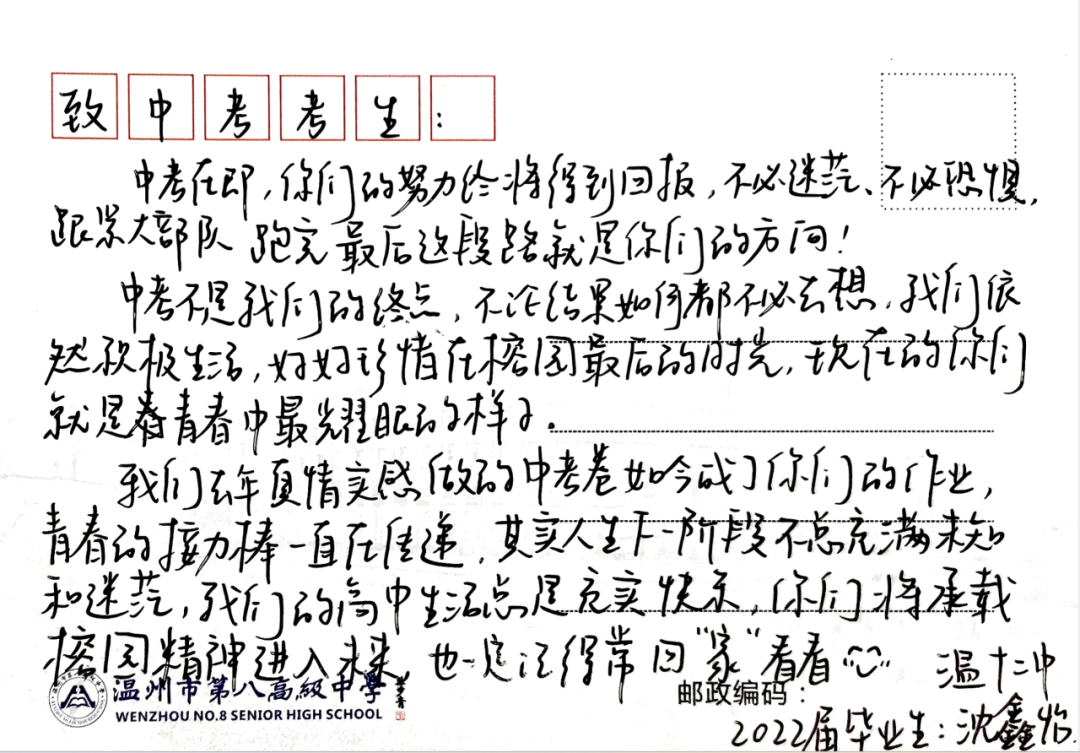 致中考考生：
中考在即，你们的努力终将得到回报，不必迷茫、不必恐惧，
跟紧大部队 跑完最后这段路就是你们的方向！
中考不是我们的终点，不论结果如何都不必去想，我们依
然积极生活，好好珍惜在榕园最后的时光，现在的你们
就是青春中最光耀眼的样子。
我们去年真情实感做的中考卷如今成了你们的作业，
青春的接力棒一直在传递，其实人生下一阶段不总充满未知
和迷茫，我们的高中生活总是充实快乐，你们将承载
榕园精神进入未来，也一定记得常回“家”看看 温十二中
温州市第八高级中学
WENZHOU NO.8 SENIOR HIGH SCHOOL
邮政编码：
2022届毕业生：沈鑫怡